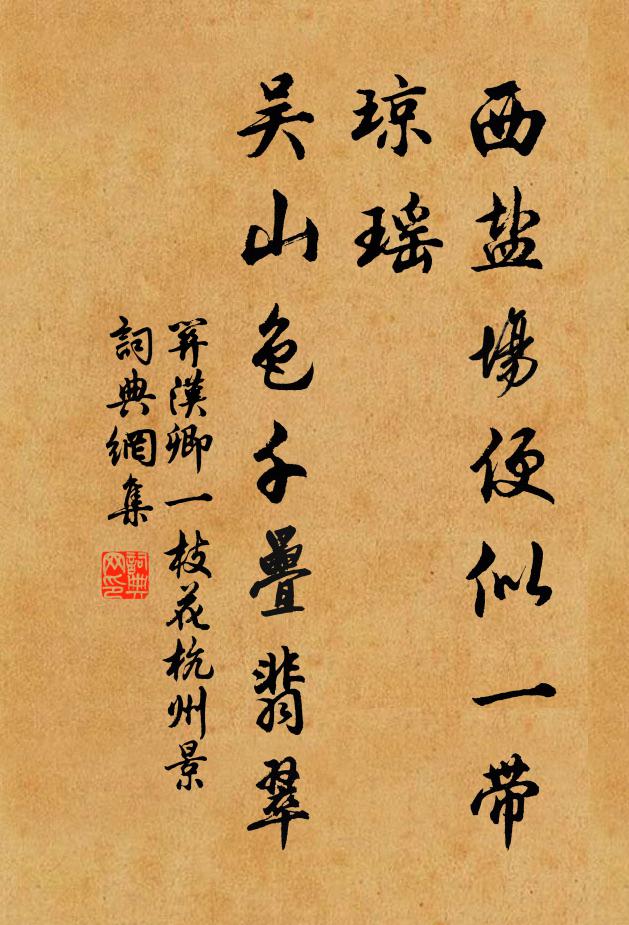 西盐場便似一带
琼瑶
吴山色千疊翡翠
関漢卿一枝花杭州景
詞典網集
詞典网印